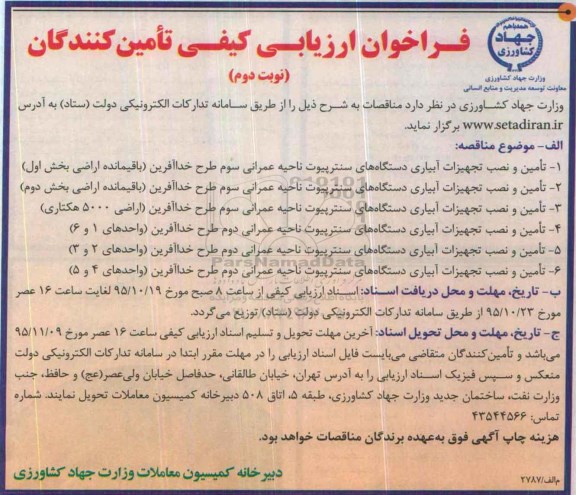 همدلی باهم
جهاد
کشاورزی
وزارت جهاد کشاورزی
معاونت توسعه مدیریت و منابع انسانی
فراخوان ارزیابی کیفی تأمین‌کنندگان
(نوبت دوم)
وزارت جهاد کشاورزی در نظر دارد مناقصات به شرح ذیل را از طریق سامانه تدارکات الکترونیکی دولت (ستاد) به آدرس
www.setadiran.ir برگزار نماید.
الف- موضوع مناقصه:
۱- تأمین و نصب تجهیزات آبیاری دستگاه‌های سنترپیوت ناحیه عمرانی سوم طرح خداآفرین (باقیمانده اراضی بخش اول)
۲- تأمین و نصب تجهیزات آبیاری دستگاه‌های سنترپیوت ناحیه عمرانی سوم طرح خداآفرین (باقیمانده اراضی بخش دوم)
۳- تأمین و نصب تجهیزات آبیاری دستگاه‌های سنترپیوت ناحیه عمرانی سوم طرح خداآفرین (اراضی ۵۰۰۰ هکتاری)
۴- تأمین و نصب تجهیزات آبیاری دستگاه‌های سنترپیوت ناحیه عمرانی دوم طرح خداآفرین (واحدهای ۱ و ۶)
۵- تأمین و نصب تجهیزات آبیاری دستگاه‌های سنترپیوت ناحیه عمرانی دوم طرح خداآفرین (واحدهای ۲ و ۳)
ParsNamadData
۶- تأمین و نصب تجهیزات آبیاری دستگاه‌های سنترپیوت ناحیه عمرانی دوم طرح خداآفرین (واحدهای ۴ و ۵)
ب- تاریخ، مهلت و محل دریافت اسناد: اسناد ارزیابی کیفی از ساعت ۸ صبح مورخ ۹۵/۱۰/۱۹ لغایت ساعت ۱۶ عصر
مورخ ۹۵/۱۰/۲۳ از طریق سامانه تدارکات الکترونیکی دولت (ستاد) توزیع می‌گردد.
ج- تاریخ، مهلت و محل تحویل اسناد: آخرین مهلت تحویل و تسلیم اسناد ارزیابی کیفی ساعت ۱۶ عصر مورخ ۹۵/۱۱/۰۹
می‌باشد و تأمین‌کنندگان متقاضی می‌بایست فایل اسناد ارزیابی را در مهلت مقرر ابتدا در سامانه تدارکات الکترونیکی دولت
منعکس و سپس فیزیک اسناد ارزیابی را به آدرس تهران، خیابان طالقانی، حدفاصل خیابان ولی‌عصر(عج) و حافظ، جنب
وزارت نفت، ساختمان جدید وزارت جهاد کشاورزی، طبقه ۵، اتاق ۵۰۸ دبیرخانه کمیسیون معاملات تحویل نمایند. شماره
تماس: ۴۳۵۴۴۵۶۶
هزینه چاپ آگهی فوق به‌عهده برندگان مناقصات خواهد بود.
دبیرخانه کمیسیون معاملات وزارت جهاد کشاورزی
م‌الف/۲۷۸۷